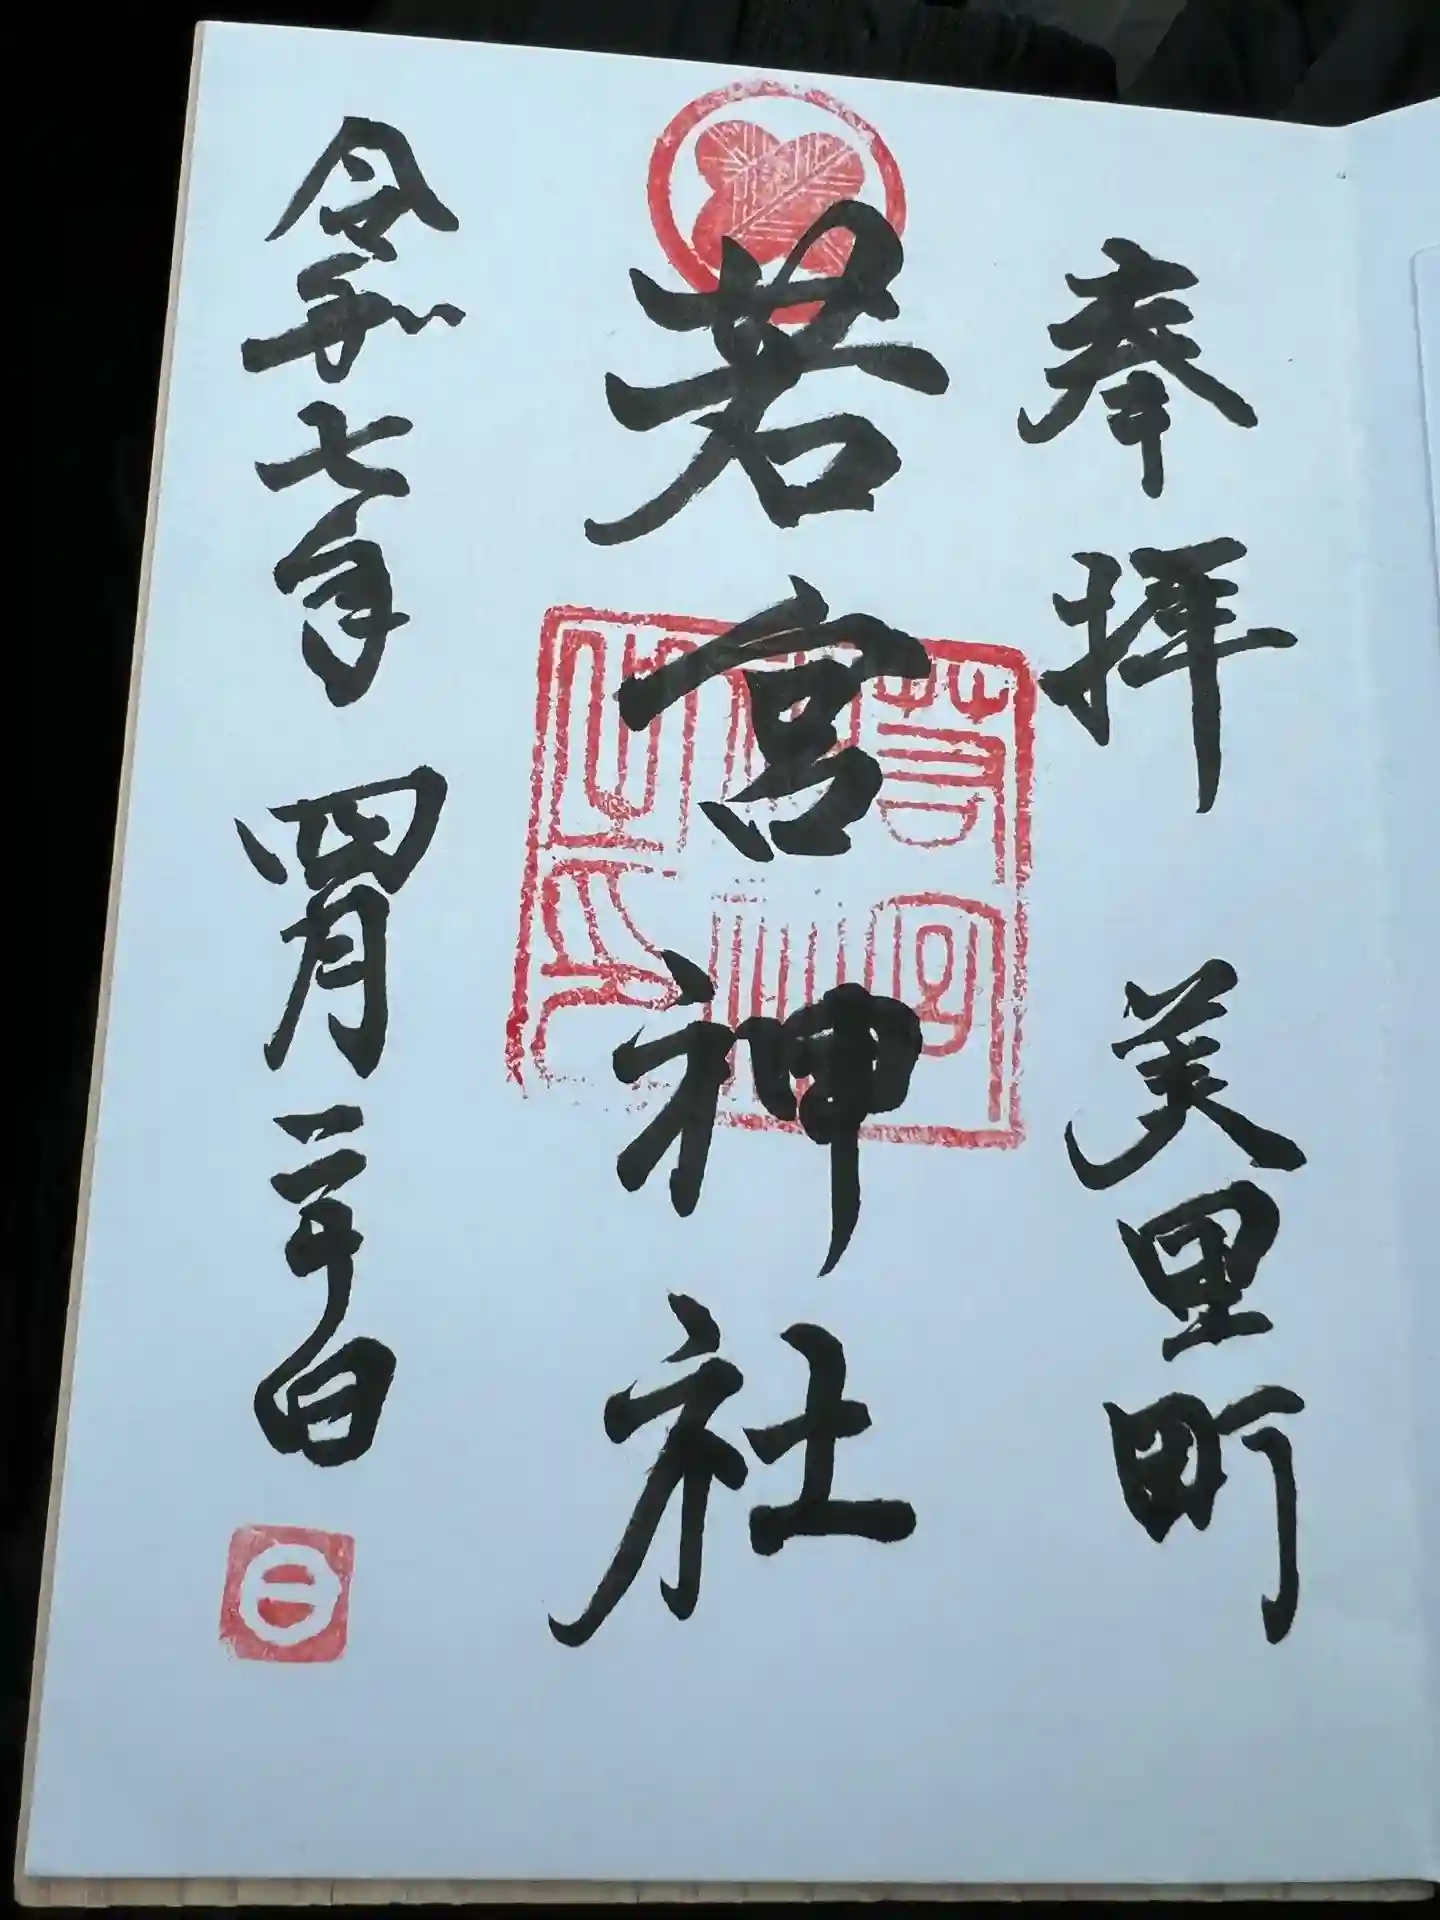 奉拝 美里町
若宮神社
若宮神社之印
令和七年 四月二十日